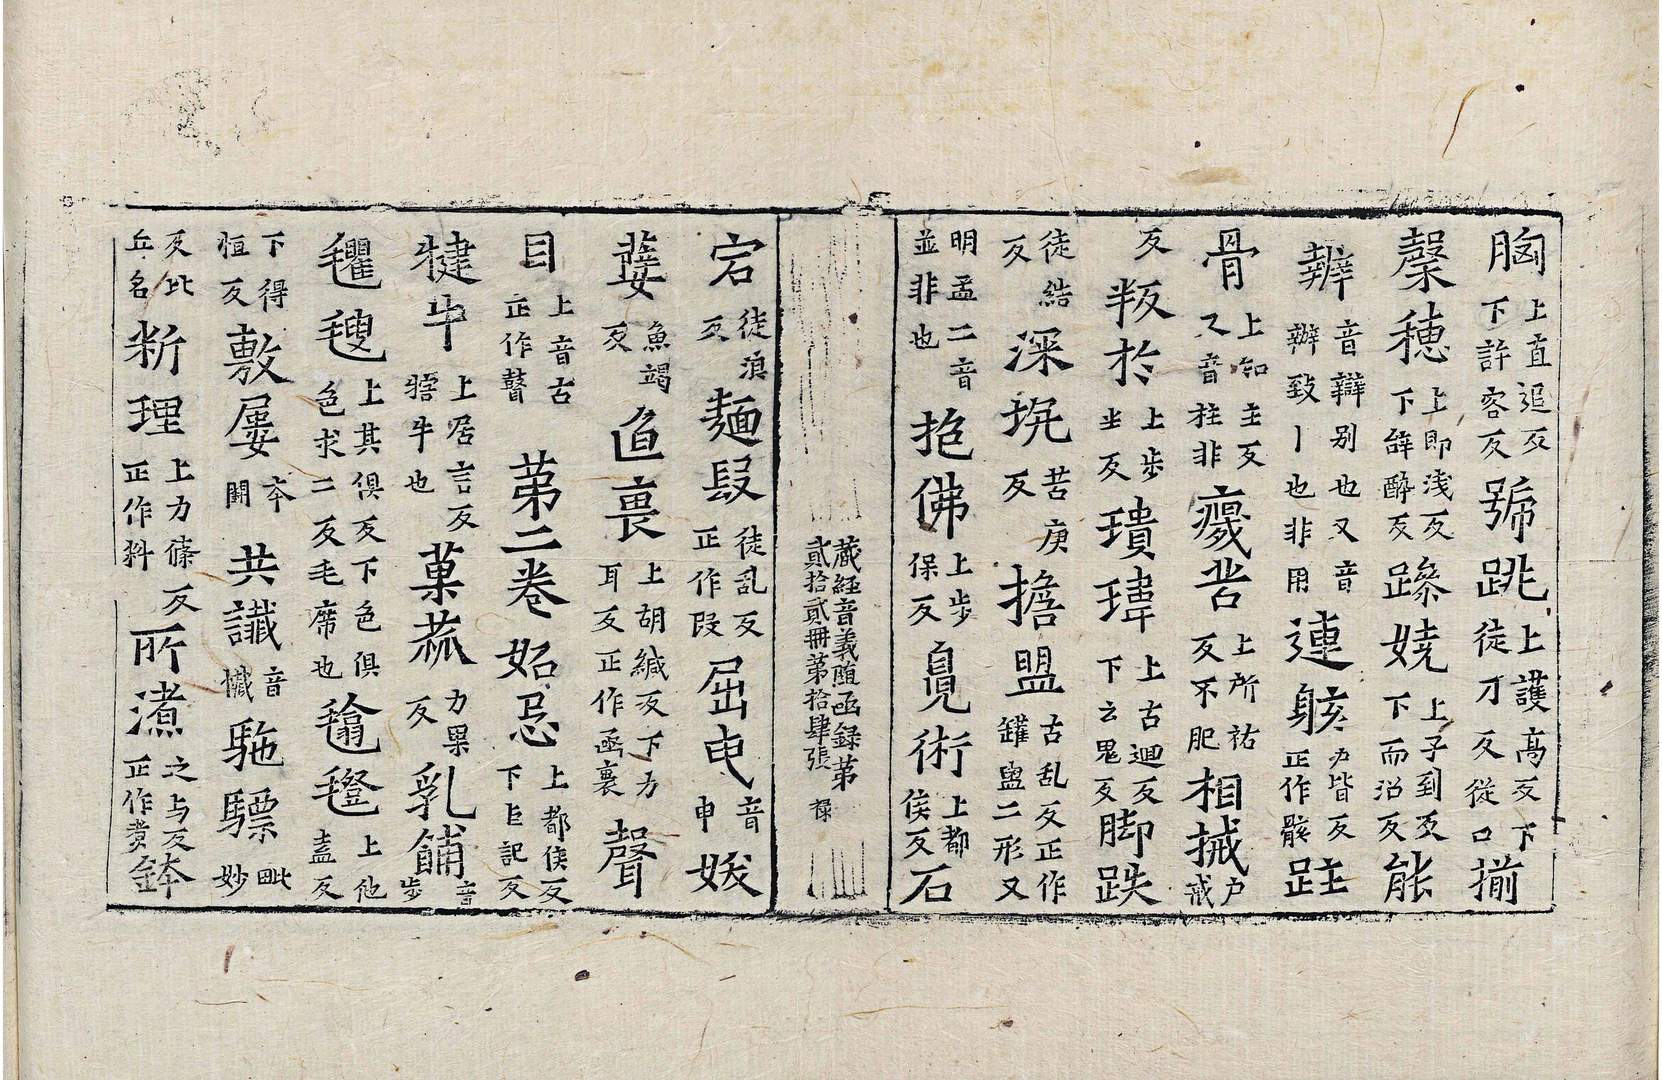 胸上直追反下許容反號跳上護高反下徒刀反從口揃
槃穗上即浅反下辝醉反蹽嬈上子到反下而沼反能
辩音辯别也又音辦致丨也非用連骸戸皆反正作骸跓
骨上知主反又音柱非癁呰上所祐反不肥相搣戸戒
反叛於上步坐反璝瑋上古迴反下云鬼反脚跌
徒結反深坑苦庚反擔盟古乱反正作鑵盥二形又
明孟二音並非也抱佛上步保反㒵術上都侯反石
蔵經音義随函録第
貳拾貳冊第拾肆張 祿
宕徒浪反麺段徒乱反正作段屈申音申妭
㜸魚竭反直裏上胡緘反下力耳反正作函裏聲
目上音古正作瞽 第二卷 妬忌上都侯反下巨記反
犍牛上居言反犗牛也菓蓏力果反乳餔音步
氍毹上其俱反下色俱色求二反毛席也㲪㲪上他盍反
下得恒反敷屢夲開共讖音懺駞驃毗妙
反比丘名断理上力條反正作料所㵭之与反正作煑鉢